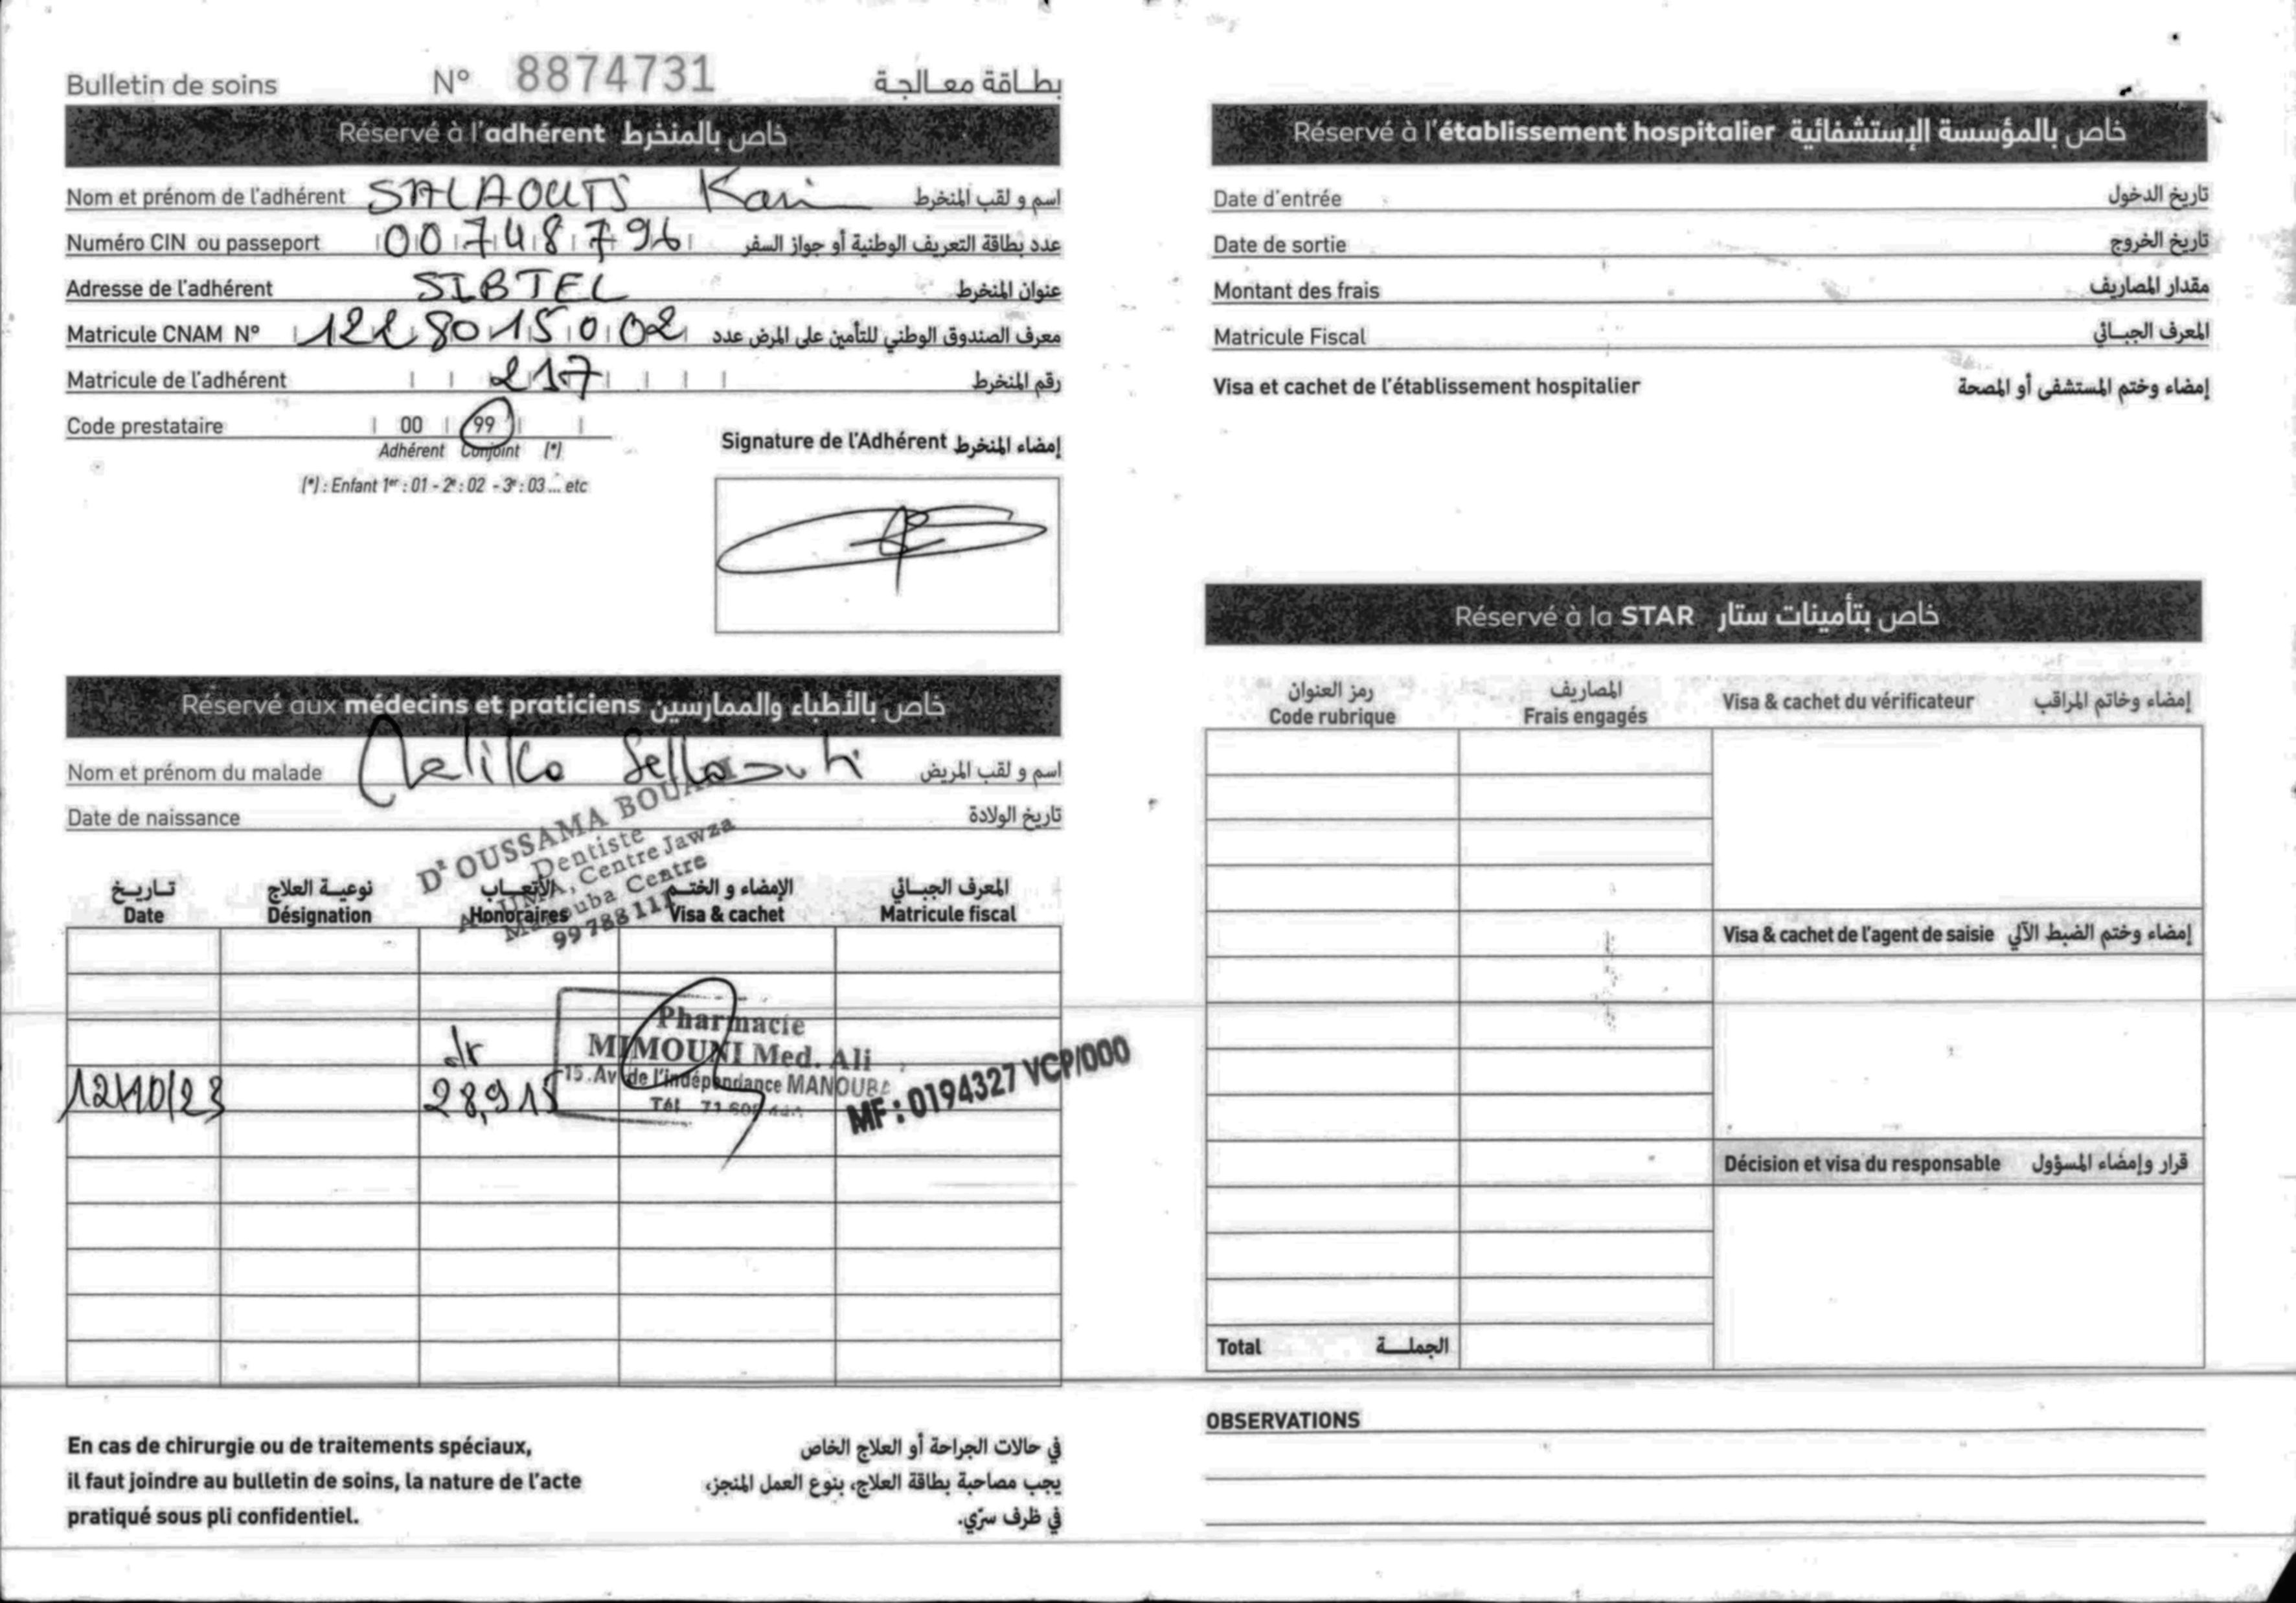 Bulletin de soins N° 8874731 بطاقة معالجة
Réservé à l'adhérent خاص بالمنخرط
Nom et prénom de l'adhérent SALAOUTI Karim اسم و لقب المنخرط
Numéro CIN ou passeport 00748796 عدد بطاقة التعريف الوطنية أو جواز السفر
Adresse de l'adhérent SIBTEL عنوان المنخرط
Matricule CNAM N° 1228015002 معرف الصندوق الوطني للتأمين على المرض عدد
Matricule de l'adhérent 217 رقم المنخرط
Code prestataire 00 99
Adhérent Conjoint (*)
(*) : Enfant 1er : 01 - 2e : 02 - 3e : 03 ... etc
Signature de l'Adhérent إمضاء المنخرط
Réservé aux médecins et praticiens خاص بالأطباء والممارسين
Nom et prénom du malade Melika Sellaouti اسم و لقب المريض
Date de naissance تاريخ الولادة
Dr OUSSAMA
Dentiste
Centre Jawza
Centre
99 788 111
تاريخ نوعية العلاج الأتعاب الإمضاء و الختم المعرف الجبائي
Date Désignation Honoraires Visa & cachet Matricule fiscal
12/10/23 28,915
Pharmacie
MIMOUNI Med. Ali
15. Av. de l'indépendance MANOUBA
Tél
MF : 0194327 VCP/000
En cas de chirurgie ou de traitements spéciaux,
il faut joindre au bulletin de soins, la nature de l'acte
pratiqué sous pli confidentiel.
في حالات الجراحة أو العلاج الخاص
يجب مصاحبة بطاقة العلاج، بنوع العمل المنجز،
في ظرف سرّي.
Réservé à l'établissement hospitalier خاص بالمؤسسة الإستشفائية
Date d'entrée تاريخ الدخول
Date de sortie تاريخ الخروج
Montant des frais مقدار المصاريف
Matricule Fiscal المعرف الجبائي
Visa et cachet de l'établissement hospitalier إمضاء وختم المستشفى أو المصحة
Réservé à la STAR خاص بتأمينات ستار
رمز العنوان المصاريف
Code rubrique Frais engagés Visa & cachet du vérificateur إمضاء وخاتم المراقب
Visa & cachet de l'agent de saisie إمضاء وختم الضبط الآلي
Décision et visa du responsable قرار وإمضاء المسؤول
Total الجملة
OBSERVATIONS